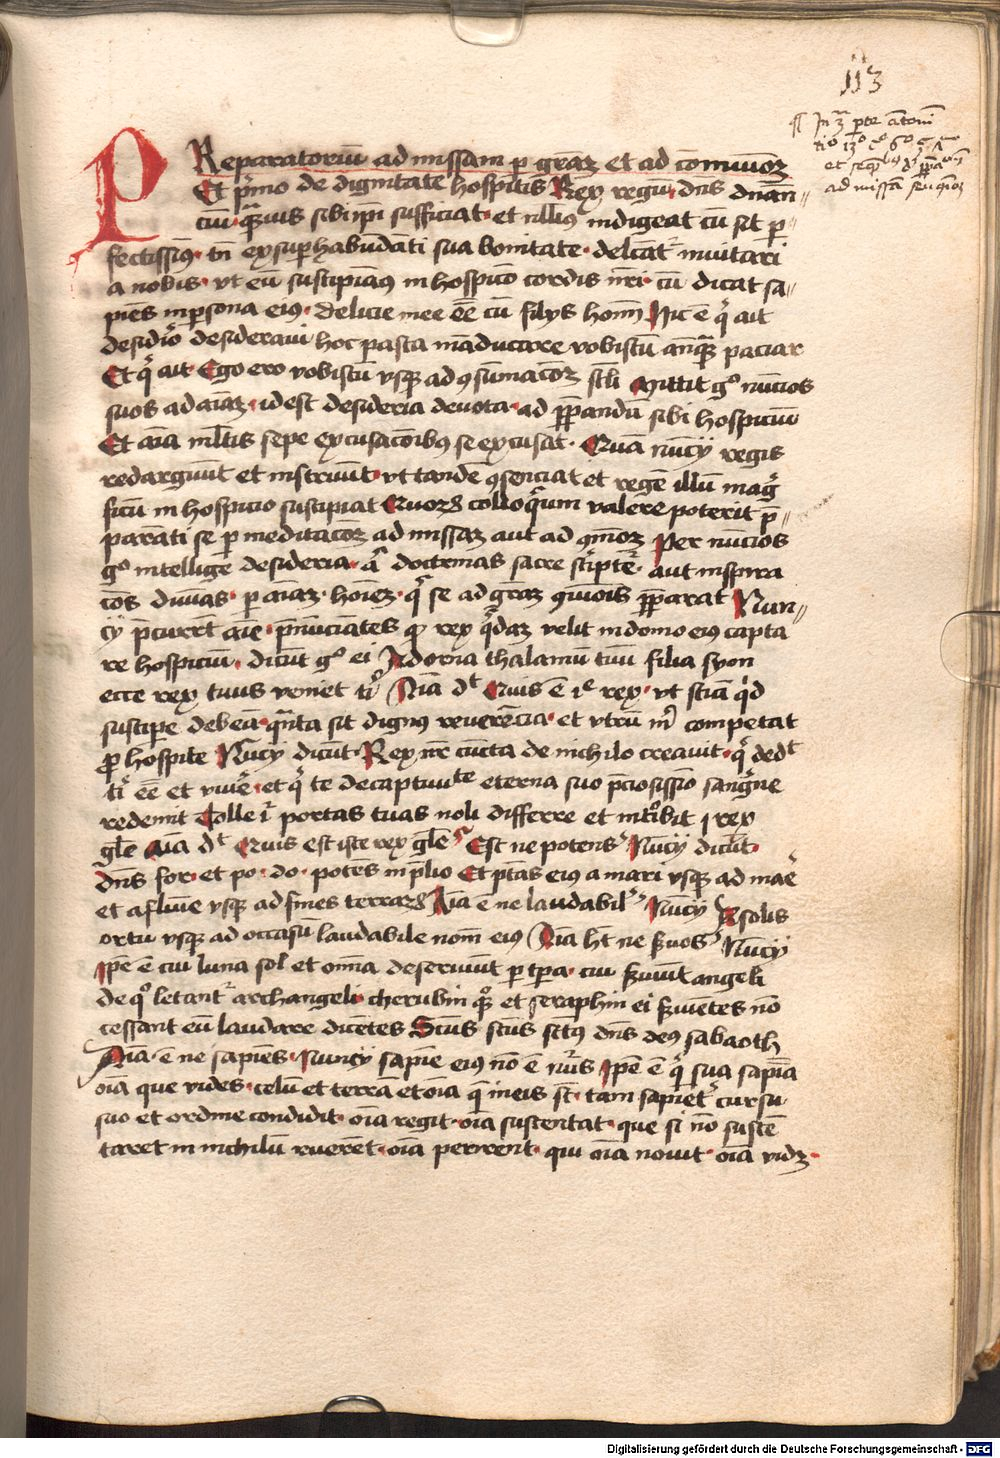 113
¶ In 3ª pte Antoni
ti° 13° c° 6° §
ad missā seu ꝯīoȝ
PReparatoriū ad missam p graȝ et ad cōmuīoȝ
Et pͥmo de dignitate hospitis Rex regū dns dnān⸗
ciū qᵃuis sibi ipi sufficiat et nllius indigeat cū sit p⸗
fectissimꝰ tn̄ ex suphabūdāti sua bonitate delcāt inuitari
a nobis vt eū suscipiamꝰ in hospicō cordis nr̄i cū dicat sa⸗
piēs in psona eiꝰ delicie mee ēē cū filijs hoīm Hic ē qͥ ait
desidio desideraui hoc pasca māducare vobiscū anqᵃ paciar
Et qͥ ait Ego ero vobiscū vsqꝫ ad ꝯsūmacōꝫ scl̄i Mittit gͦ nūcios
suos ad aīaꝫ idest desideria deuota ad p̄pandū sibi hospiciū
Et aīa ml̄tis sepe excusacōibus se excusat Qua nūcij regis
redarguūt et instruūt vt tandē ꝯsenciat et regē illū mag
ficū in hospicio suscipiat Quoꝝ colloqͥum valere poterit p̄⸗
parāti se p meditacōꝫ ad missaꝫ aut ad ꝯīoꝫ Per nūcios
gͦ intelligē desideria doctrinas sacre scͥptᵉ aut inspira
cōs diuīas p aīaꝫ hoīeꝫ qᵃ se ad graꝫ ꝯuīois p̄parat Nun⸗
cij p̄currēt aīe p̄nūciātes ꝙ rex qͥdaꝫ velit in domo eiꝰ capta
re hospiciū dicūt gͦ ei Adorna thalamū tuū filia syon
ecce rex tuus veniet tͥ Aīa dͭ Quis ē iͤ rex vt sciā qͥd
suscipe debeā qᵃnta sit dignꝰ reuerēcia et vtrū mͥ competat
ꝓ hospite Nūcij dicūt Rex nr̄ cūcta de nichilo creauit qͥ dedͭ
tͥ ēē et viuē et qͥ te de captiuiᵗᵉ eterna suo p̄ciosissīo sangͥne
redemit Tolle gͥ portas tuas noli differre et intͦibit ꝯ rex
gl̄e Aīa dͭ Quis est iste rex gl̄e Est ne potens Nūcij dicūt
dn̄s for et po do potēs in p̄lio Et ptās eiꝰ a mari vsqꝫ ad maē
et a fluīe vsqꝫ ad fines terraꝝ Aīa ē ne laudabil Nūcij A solis
ortu vsqꝫ ad occasū laudabile nom̄ eiꝰ Aīa hꝫ ne ẜuos Nūcij
Ipē ē cui luna sol et om̄ia deseruiūt p tpa cui ẜuiūt angeli
de qͦ letantᵉ archangeli cherubin qͦꝫ et seraphin ei ẜuiētes nō
cessant eū laudare dicētes Scūs scūs sctꝰ dn̄s deꝰ sabaoth
Aīa ē ne sapiēs Nuncij sapīe eiꝰ nō ē nūs Ipē ē qͥ sua sapīa
oīa que vides celū et terrā et oīa q̄ in eis sͭ tam sapietᵉ cursu
suo et ordine condidit oīa regit oīa sustentat que si nō sustē
taret in nichilū ruerēt oīa perirent qui oīa nouit oīa vidꝫ
Digitalisierung gefördert durch die Deutsche Forschungsgemeinschaft - DFG